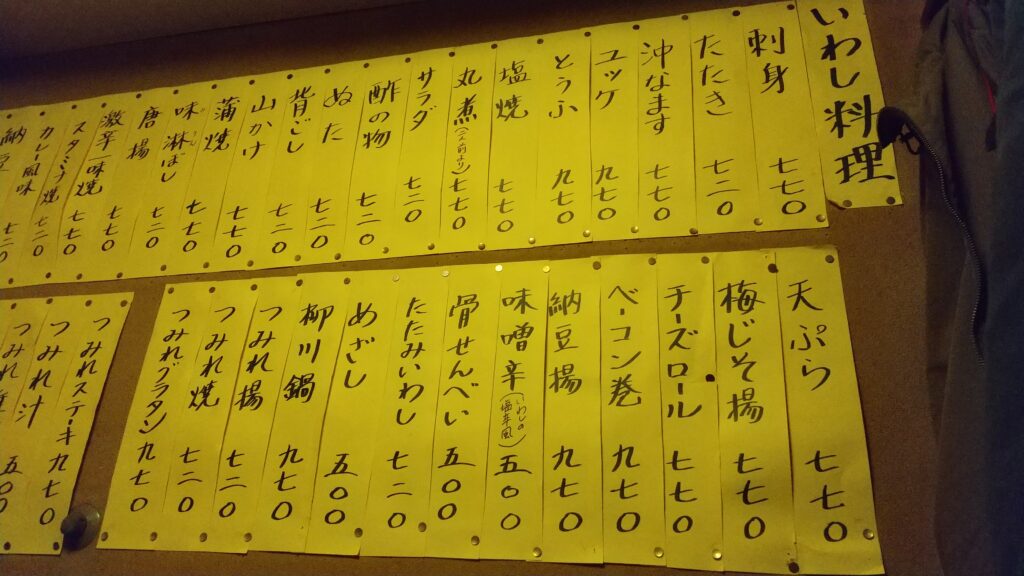 いわし料理
刺身 七七〇
たたき 七二〇
沖なます 七七〇
ユッケ 九七〇
とうふ 九七〇
塩焼 七七〇
丸煮 七七〇
サラダ 七二〇
酢の物 七二〇
ぬた 七二〇
背ごし 七二〇
山かけ 七二〇
蒲焼 七七〇
味淋ぼし 七七〇
唐揚 七二〇
激辛一味焼 七七〇
スタミナ焼 七七〇
カレー風味 七二〇
納豆 七二〇
天ぷら 七七〇
梅じそ揚 七七〇
チーズロール 七七〇
ベーコン巻 九七〇
納豆揚 九七〇
味噌辛(いわしの塩辛風) 五〇〇
骨せんべい 五〇〇
たたみいわし 七二〇
めざし 五〇〇
柳川鍋 九七〇
つみれ揚 七二〇
つみれ焼 七二〇
つみれグラタン 九七〇
つみれステーキ 九七〇
つみれ汁 五〇〇
つみれ